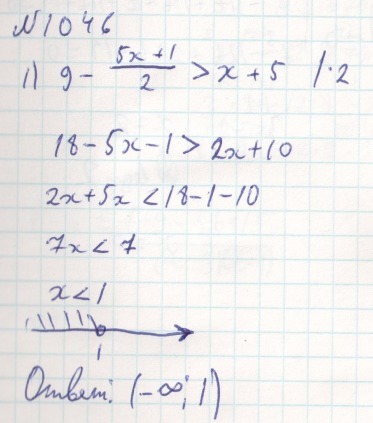 №1046
1) 9 - (5x+1)/2 > x+5 /·2
18-5x-1 > 2x+10
2x+5x < 18-1-10
7x < 7
x < 1
1
Ответ: (-∞; 1)